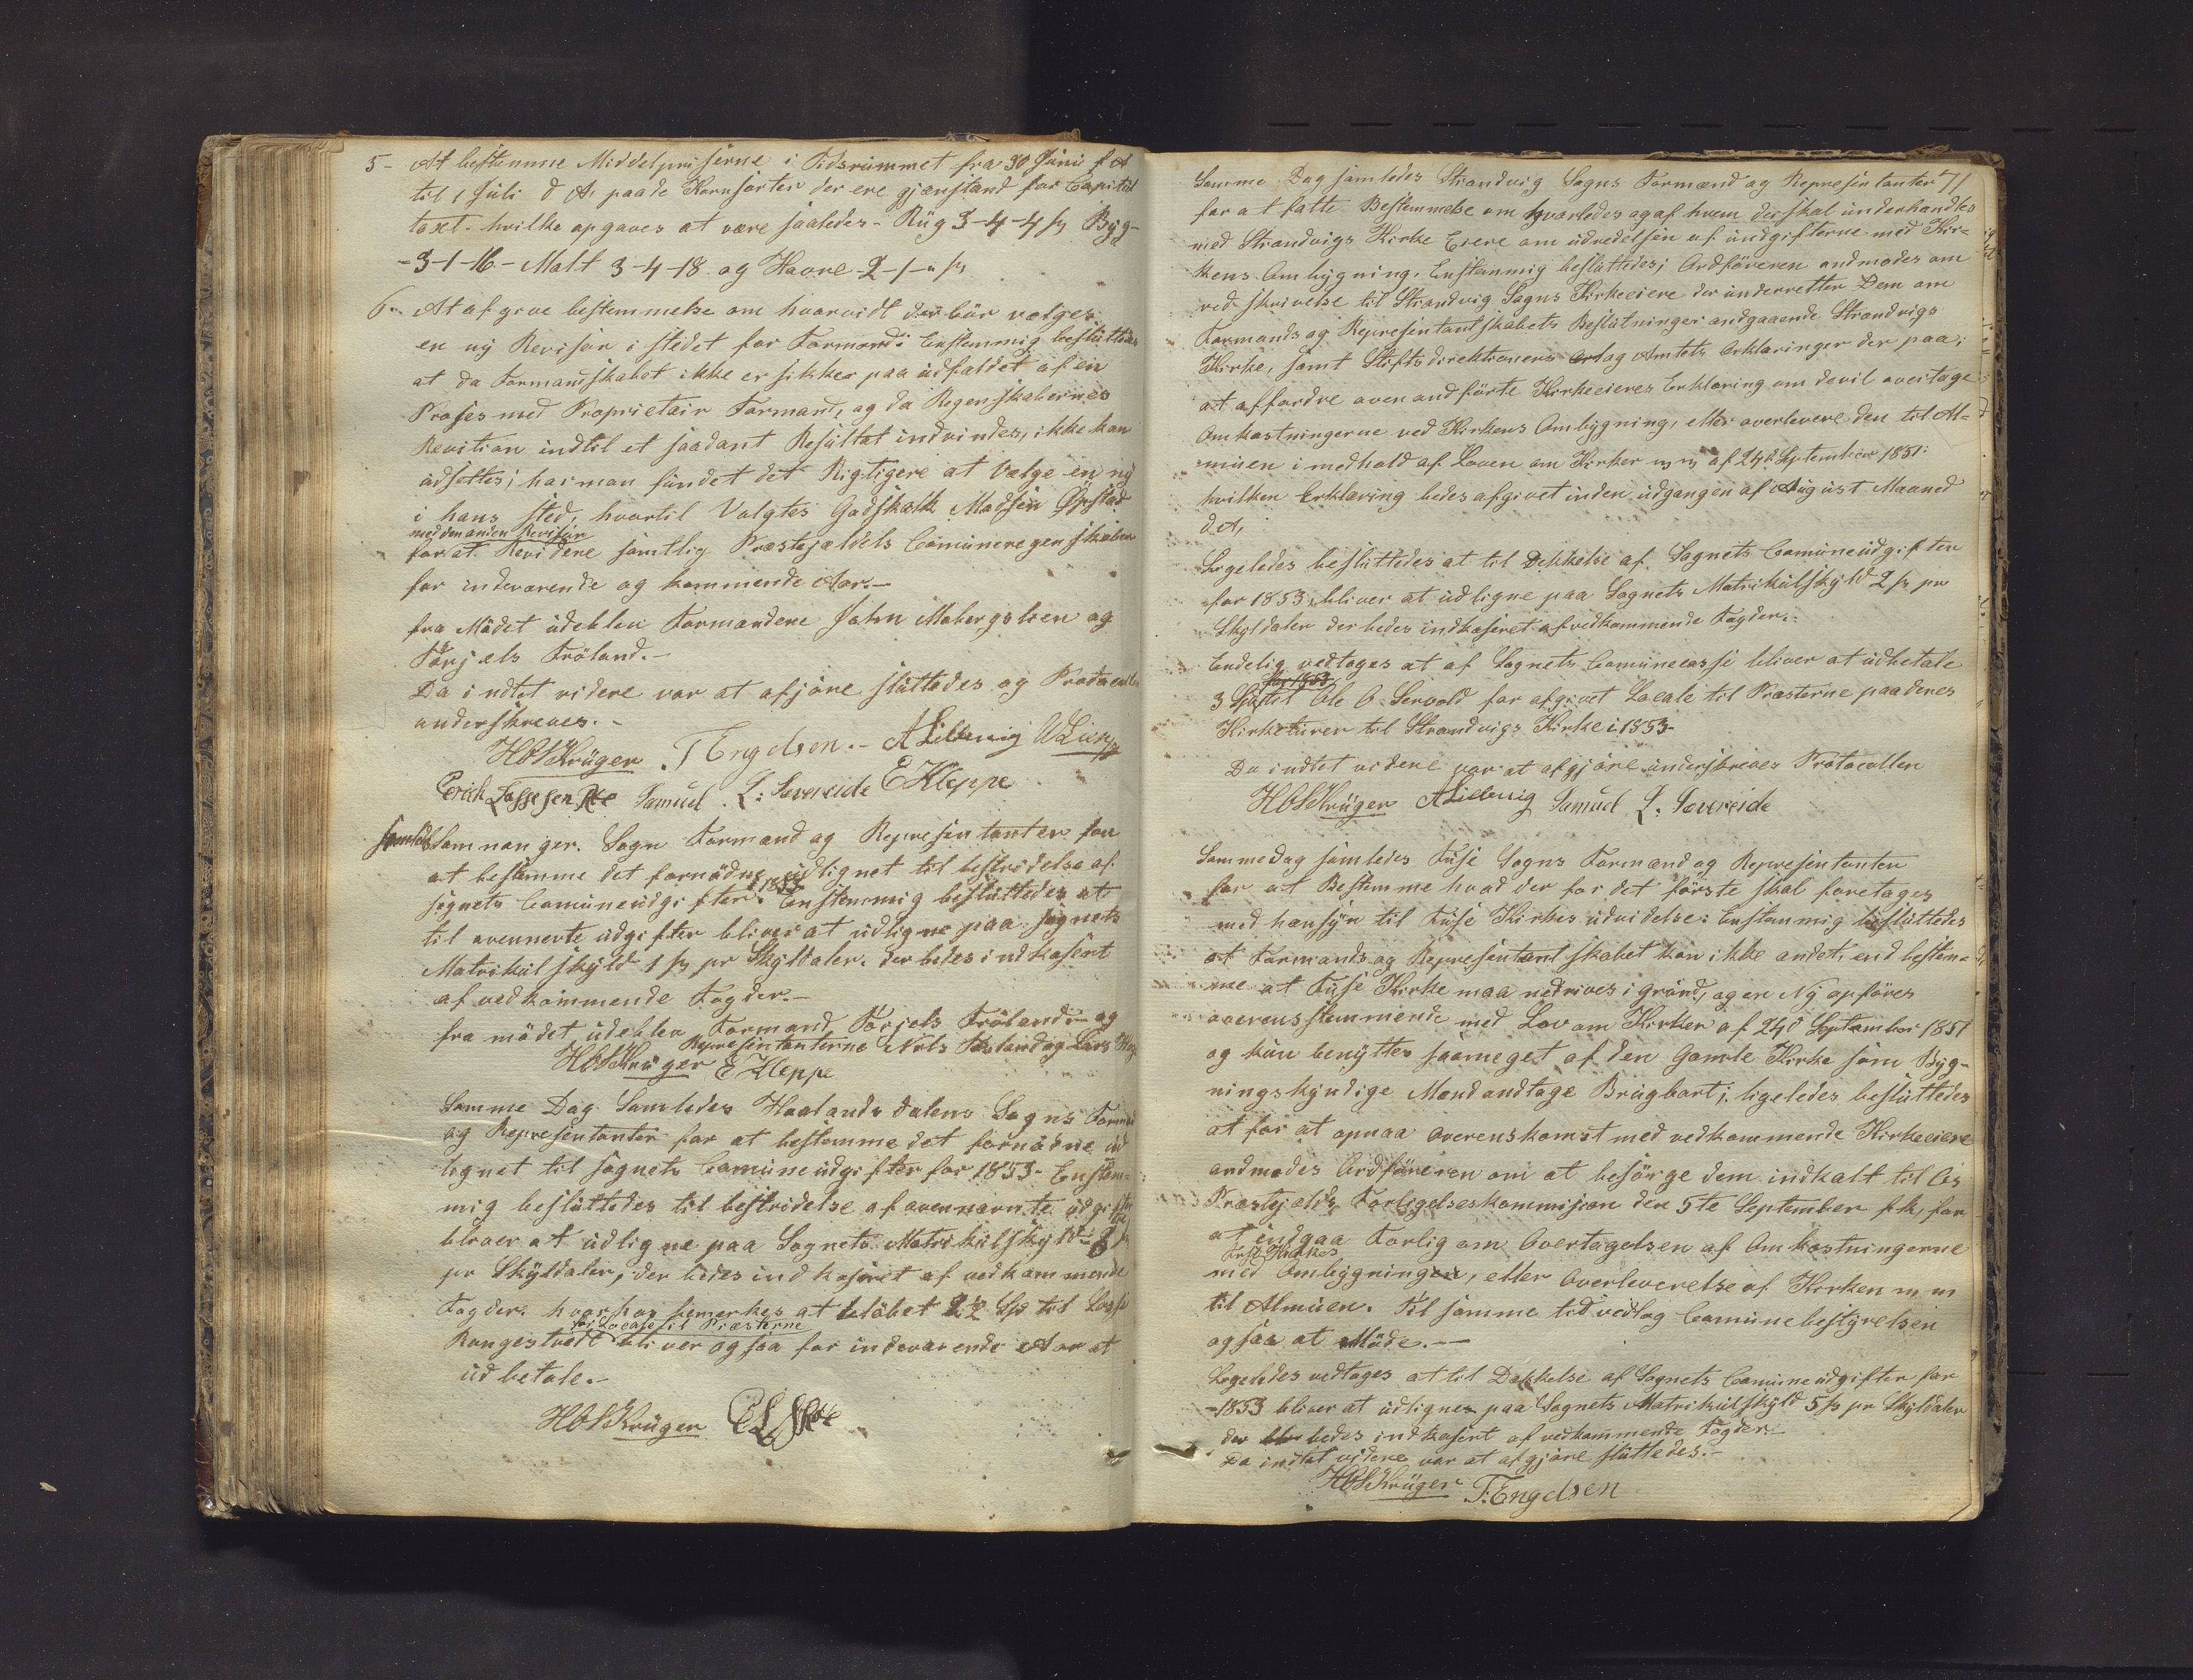 5- At bestemme Middelpriserne i Tidsrummet fra 30 Juni f A
til 1 Juli d A. paa de Kornsorter der ere gjenstand for Capitel
taxt. hvilke opgaves at være saaledes- Rüg 3-4-4 s, Byg-
-3-1-16- Malt 3-4-18 og Havre 2-1-" s,
6- At afgive bestemmelse om hvorvidt der bür vælges
en ny Revisor i stedet for Formand: Enstemmig beslüttedes
at da Formandskabet ikke er sikker paa üdfaldet af en
Proses med Proprietair Formand, og da Regenskabernes
Revition indtil et saadant Resültat indvindes, ikke kan
üdsettes; har man fündet det Rigtigere at Vælge en ny
i hans sted, hvortil Valgtes Godskalk Madsen Øvstad
med den anden Revisor
for at Revidere samtlig Præstejældets Comüneregenskaber
for indeværende og kommende Aar.-
fra Mödet üdeblev Formændene John Mobergslien og
Torjæls Fröland.-
Da indtet videre var at afjöre slüttedes og Protocollen
underskreves.-
HOSKrüger T Engelsen.- A Lillevig W Lien
Erich Tossesen Røe Samuel L: Sævreide E Kleppe
samledes Samnanger. Sogn Formænd og Represintanter for
at bestemme det fornödne üdlignet til bestridelse af
i 1853
sognets Comüneüdgifter. Enstemmig beslüttedes at
til avennevte üdgifter bliver at üdligne paa sognets
Matrikülskyld 1 s, pr Skyldaler. der bedes indkasert
af vedkommende Fogder.-
fra mödet üdeblev Formand Torjels Fröland:- og
Represintanterne Nels og Lars
HOSKrüger E Kleppe
Samme Dag Samledes Haalandsdalens Sogns Formænd
og Represintanter for at bestemme det fornödne üd
lignet til sognets Comüneüdgifter for 1853- Enstem-
mig beslüttedes til bestridelse af avennævnte üdgifter
bliver at üdligne paa Sognets Matrikülskyld
pr Skyldaler, der bedes indkaseret af vedkommende
Fogder. hvorhos bemerkes at belöbet 2½ Spd til
for Locale til Præsterne
Rangestvedt bliver ogsaa for indeværende Aar at
üdbetale.-
HOSKrüger
71
Samme Dag samledes Strandvig Sogns Formænd og Represintanter
for at fatte Bestemmelse om hvorledes og af hvem der skal ünderhandles
med Strandvigs Kirke Eiere om üdredelsen af üdgifterne med Kir-
kens Ombygning. Enstemmig beslüttedes; Ordföreren andmodes om
ved skrivelse til Strandvig Sogns Kirkeeiere der ünderretter Dem om
Formands og Represintantskabets Beslütninger andgaaende Strandvigs
Kirke, samt Stiftsdirektionens og Amtets Erklæringer der paa;
at affordre avenandførte Kirkeeieres Erklæring om de vil overtage
Omkostningerne ved Kirkens Ombygning, eller overlevere den til Al-
müen i medhold af Loven om Kirker m m af 24d September 1851:
hvilken Erklæring bedes afgivet inden üdgangen af Aügüst Maaned
d A,
Ligeledes beslüttedes at til Dekkelse af Sognets Comüneüdgifter
for 1853 bliver at üdligne paa Sognets Matrikülskyld 2 s, pr
Skyldaler der bedes indkaseret af vedkommende Fogder:-
Endelig vedtoges at af Sognets Comünecasse bliver at üdbetale
for 1853
3 Spd til Ole O Servold for afgivet Locale til Præsterne paa deres
Kirketürer til Strandvigs Kirke i 1853-
Da indtet videre var at afgjöre ünderskreves Protocollen
HOSKrüger A Lillevig Samuel L. Sævreide
Samme dag samledes Füse Sogns Formænd og Represintanter
for at Bestemme hvad der for det förste skal foretages
med hensyn til Füse Kirkes üdvidelse: Enstemmig beslüttedes
at Formands og Represintantskabet kan ikke andet, end bestem-
me at Füse Kirke maa nedrives i gründ, og en Ny opföres
overensstemmende med Lov om Kirker af 24d September 1851
og kün benyttes saameget af den Gamle Kirke som Byg-
ningskyndige Mænd andtage Brügbart; ligeledes beslüttedes
at for at opnaa overenskomst med vedkommende Kirkeeiere
andmodes Ordföreren om at besörge dem indkalt til Os
Præstejælds Forligelseskommision den 5te September f k, for
at indgaa Forlig om Overtagelsen af Omkostningerne
Füse Kirkes
med Ombygningen, eller Overleverelse af Kirken m m
til Almüen. Til samme tid vedtog Comünebestyrelsen
ogsaa at Möde.-
Ligeledes vedtoges at til Dekkelse af Sognets Comüneüdgifter for
-1853 bliver at üdlignes paa Sognets Matrikülskyld 5 s pr Skyldaler
der bedes indkasert af vedkommende Fogder.-
Da indtet videre var at afgjöre slüttedes.-
HOSKrüger T. Engelsen